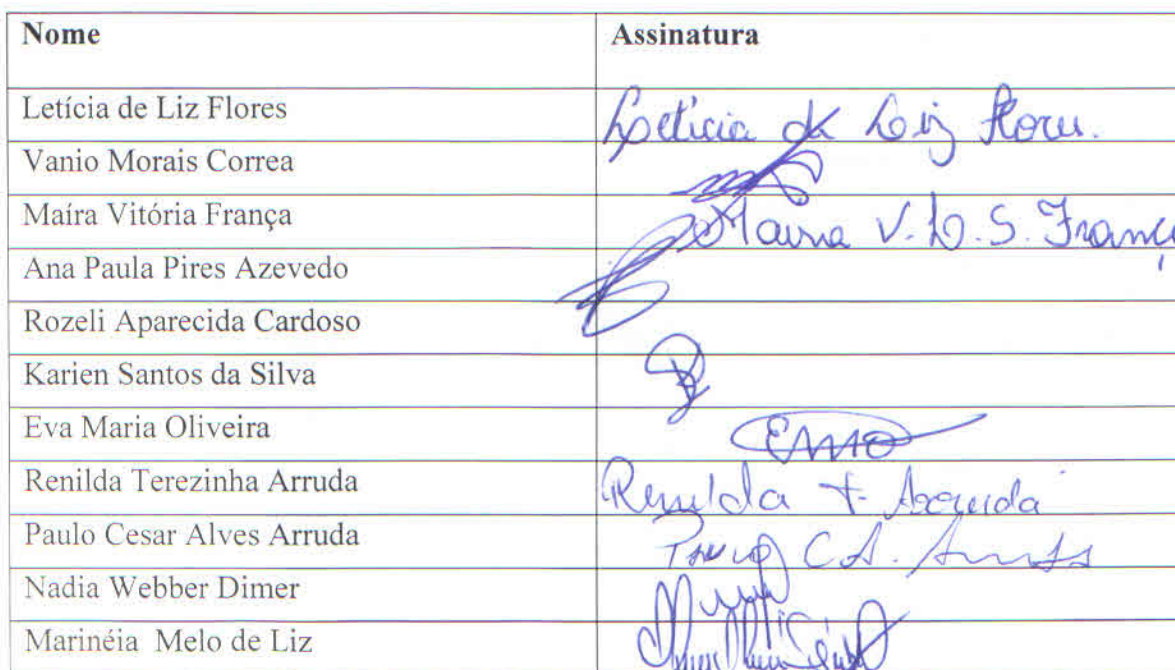 Nome Assinatura
Letícia de Liz Flores Leticia de Liz Flores.
Vanio Morais Correa
Maíra Vitória França Maira V. L. S. França
Ana Paula Pires Azevedo
Rozeli Aparecida Cardoso
Karien Santos da Silva
Eva Maria Oliveira EMO
Renilda Terezinha Arruda Renilda T. Arruda
Paulo Cesar Alves Arruda Paulo C.A. Arruda
Nadia Webber Dimer
Marinéia Melo de Liz